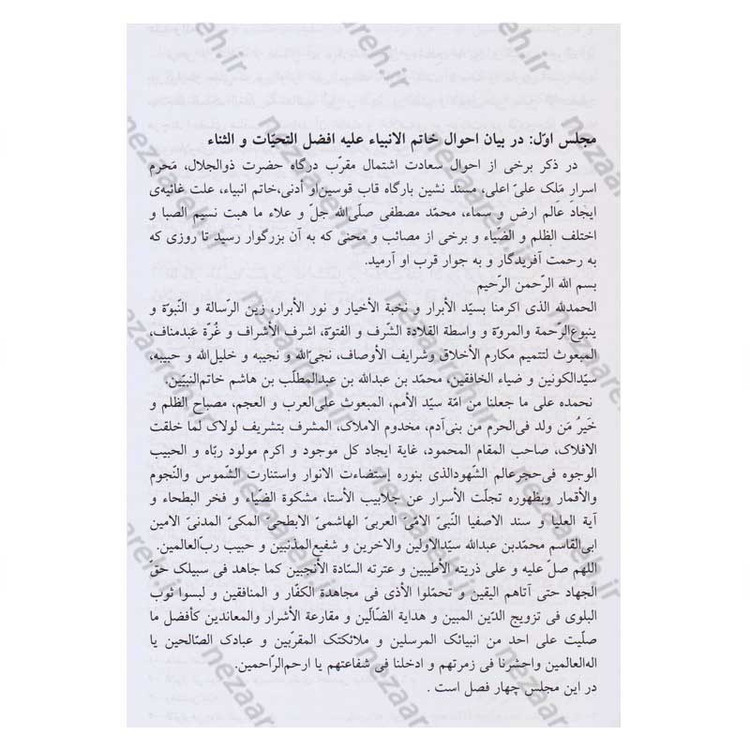 مجلس اوّل: در بیان احوال خاتم الانبیاء علیه افضل التحیّات و الثناء
در ذکر برخی از احوال سعادت اشتمال مقرّب درگاه حضرت ذوالجلال، مَحرم
اسرارِ مَلِک علیّ اعلی، مسند نشین بارگاه قاب قوسین‌او أدنی،خاتم انبیاء، علت غائیه‌ی
ایجاد عالم ارض و سماء، محمّد مصطفی صلّی‌الله جلّ و علاء ما هبت نسیم الصبا و
اختلف الظلم و الضّیاء و برخی از مصائب و محنی که به آن بزرگوار رسید تا روزی که
به رحمت آفریدگار و به جوار قرب او آرمید.
بسم الله الرّحمن الرّحیم
الحمدلله الذی اکرمنا بسیّد الأبرار و نخبة الأخیار و نور الأبرار، زین الرّسالة و النّبوّة و
ینبوع‌الرّحمة والمروّة و واسطة القلادة الشّرف و الفتوّة، اشرف الأشراف و غُرّة عَبدمناف،
المبعوث لتتمیم مکارم الأخلاق وشرایف الأوصاف، نجیّ‌الله و نجیبه و خلیل‌الله و حبیبه،
سیّدالکونین و ضیاء الخافقین، محمّد بن عبدالله بن عبدالمطلّب بن هاشم خاتم‌النبیّین.
نحمده علی ما جعلنا من امّة سیّد الأمم، المبعوث علی‌العرب و العجم، مصباح الظلم و
خَیرُ مَن ولد فی‌الحرم مَن بنی‌آدم، مخدوم الاملاک، المشرف بتشریف لولاک لما خلقت
الافلاک، صاحب المقام المحمود، غایة ایجاد کل موجود و اکرم مولود ربّاه و الحبیب
الوجوه فی‌حجرعالم الشّهودالذی بنوره إستضاءت الانوار واستنارت الشّموس والنّجوم
والأقمار وبظهوره تجلّت الأسرار عن جلابیب الأستا، مشکوة الضّیاء و فخر البطحاء و
آیة العلیا و سند الاصفیا النّبیّ الامّیّ العربیّ الهاشمیّ الابطحیّ المکیّ المدنیّ الامین
ابی‌القاسم محمّدبن عبدالله سیّدالاولین والاخرین و شفیع‌المذنبین و حبیب ربّ‌العالمین.
اللهم صلّ علیه و علی ذریته الأطیبین و عترته السّادة الأنجبین کما جاهد فی سبیلک حقّ
الجهاد حتی أتاهم الیقین و تحمّلوا الأذی فی مجاهدة الکفّار و المنافقین و لبسوا ثوب
البلوی فی تزویج الدّین المبین و هدایة الضالّین و مقارعة الأشرار والمعاندین کأفضل ما
صلّیت علی احد من انبیائک المرسلین و ملائکتک المقرّبین و عبادک الصّالحین یا
اله‌العالمین واحشرنا فی زمرتهم و ادخلنا فی شفاعتهم یا ارحم‌الرّاحمین.
در این مجلس چهار فصل است .
nezaareh.ir